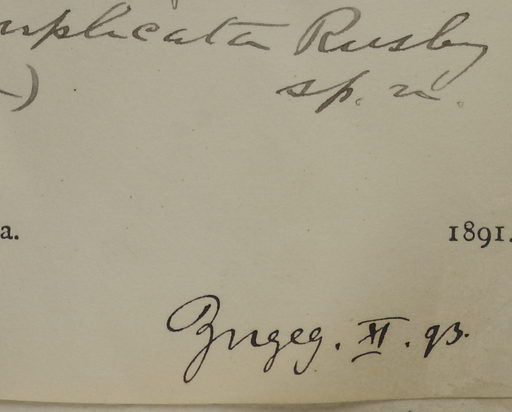 plicata Rusby
) sp. n.
a. 1891.
Zugeg. XI. 93.